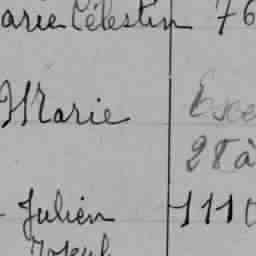 arie Célestin 76
Marie Exe
28 à
Julien 111
Joseph